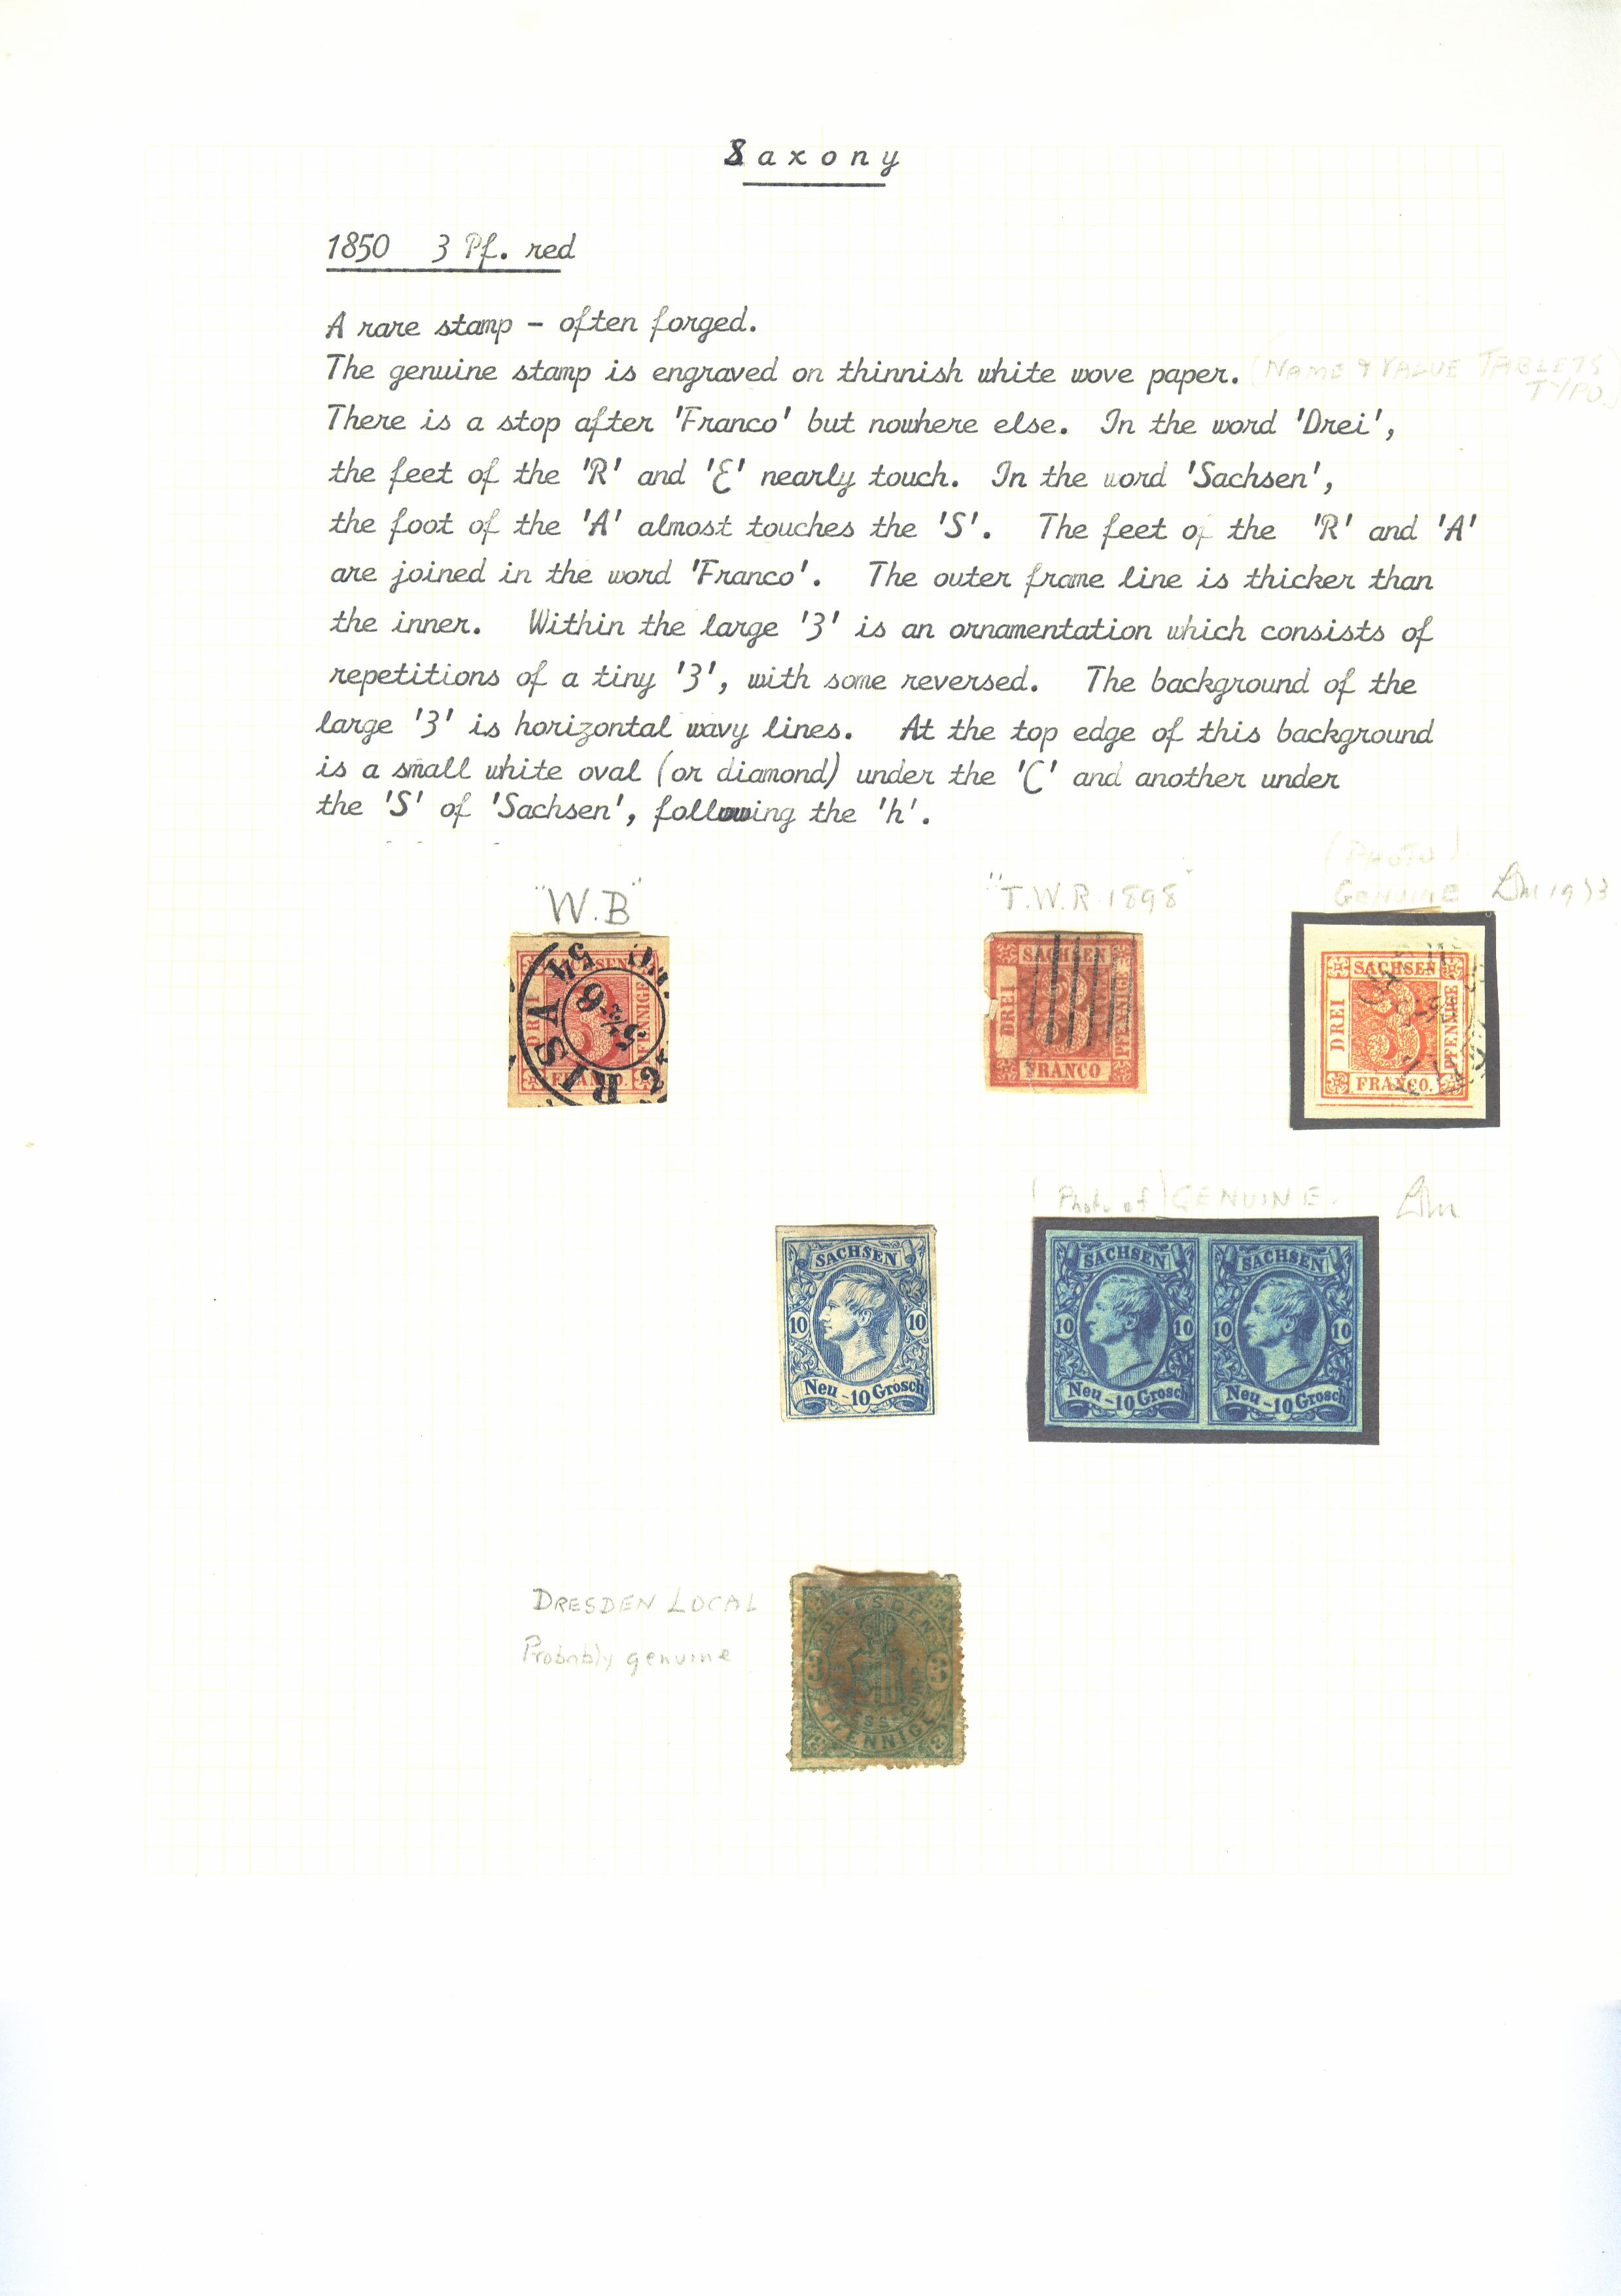 Saxony
1850 3 Pf. red
A rare stamp - often forged.
The genuine stamp is engraved on thinnish white wove paper. (NAME & VALUE TABLETS
TYPO.)
There is a stop after 'Franco' but nowhere else. In the word 'Drei',
the feet of the 'R' and 'E' nearly touch. In the word 'Sachsen',
the foot of the 'A' almost touches the 'S'. The feet of the 'R' and 'A'
are joined in the word 'Franco'. The outer frame line is thicker than
the inner. Within the large '3' is an ornamentation which consists of
repetitions of a tiny '3', with some reversed. The background of the
large '3' is horizontal wavy lines. At the top edge of this background
is a small white oval (or diamond) under the 'C' and another under
the 'S' of 'Sachsen', following the 'h'.
(PHOTO)
"W.B" "T.W.R. 1898" GENUINE
SACHSEN
DREI
PFENNIGE
FRANCO.
RISA
54
6
SACHSEN
DREI
PFENNIGE
FRANCO
SACHSEN
DREI
PFENNIGE
FRANCO.
(Photo of) GENUINE.
SACHSEN
10 10
Neu-10 Grosch
SACHSEN SACHSEN
10 10 10 10
Neu-10 Grosch Neu-10 Grosch
DRESDEN LOCAL
Probably genuine
DRESDEN
3 3
PFENNIGE